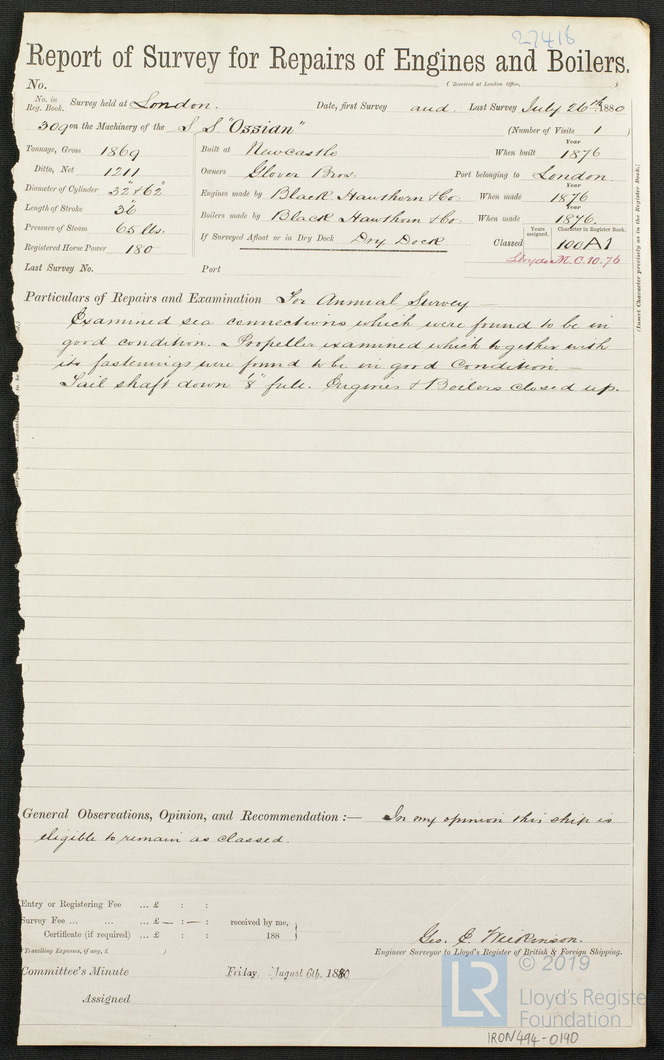 27418
Report of Survey for Repairs of Engines and Boilers.
No. (Received at London Office, )
No. in Reg. Book. Survey held at London. Date, first Survey and Last Survey July 26th 1880
309 on the Machinery of the S.S. "Ossian" (Number of Visits 1 )
Tonnage, Gross 1869 Built at Newcastle When built Year 1876
Ditto, Net 1211 Owners Glover Bros. Port belonging to London
Diameter of Cylinder 32" & 62" Engines made by Black Hawthorn & Co. When made Year 1876
Length of Stroke 36" Boilers made by Black Hawthorn & Co. When made Year 1876.
Pressure of Steam 65 lbs. If Surveyed Afloat or in Dry Dock Dry Dock Classed Years assigned. Character in Register Book. 100A1
Registered Horse Power 180 Lloyds M.C. 10.76
Last Survey No. Port
(Insert Character precisely as in the Register Book.)
Particulars of Repairs and Examination For Annual Survey
Examined sea connections which were found to be in
good condition. Propeller examined which together with
its fastenings were found to be in good condition.
Tail shaft down 1/8" full. Engines & Boilers closed up.
General Observations, Opinion, and Recommendation :— In my opinion this ship is
eligible to remain as classed.
Entry or Registering Fee ... £ : :
Survey Fee ... ... ... £ — : — : received by me,
Certificate (if required) ... £ : : 188
(Travelling Expenses, if any, £ )
Geo. E. Wilkinson.
Engineer Surveyor to Lloyd's Register of British & Foreign Shipping.
Committee's Minute Friday August 6th. 1880
Assigned
LR © 2019
Lloyd's Register
Foundation
IRON494-0190